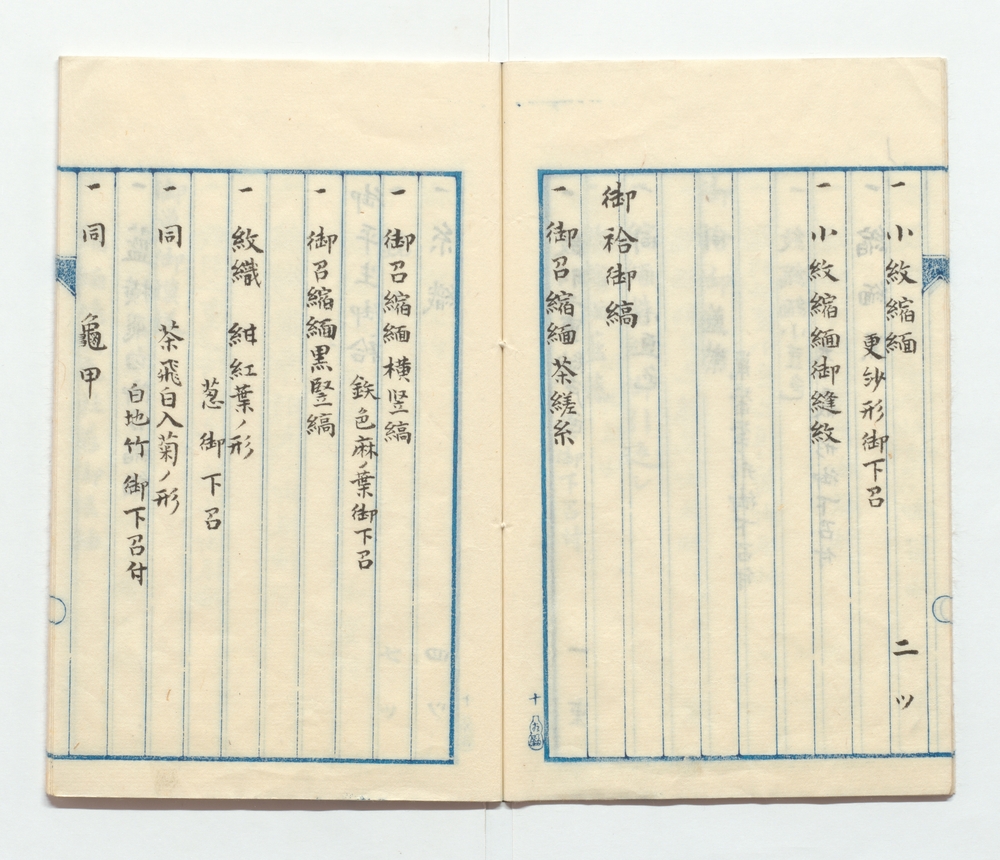 一 小紋縮緬 二ツ
更紗形御下召
一 小紋縮緬御縫紋
御袷御縞
一 御召縮緬茶縒糸
一 御召縮緬横竪縞
鉄色麻ノ葉御下召
一 御召縮緬黒竪縞
一 紋織 紺紅葉ノ形
葱御下召
一 同 茶飛白入菊ノ形
白地竹御下召付
一 同 龜甲
十